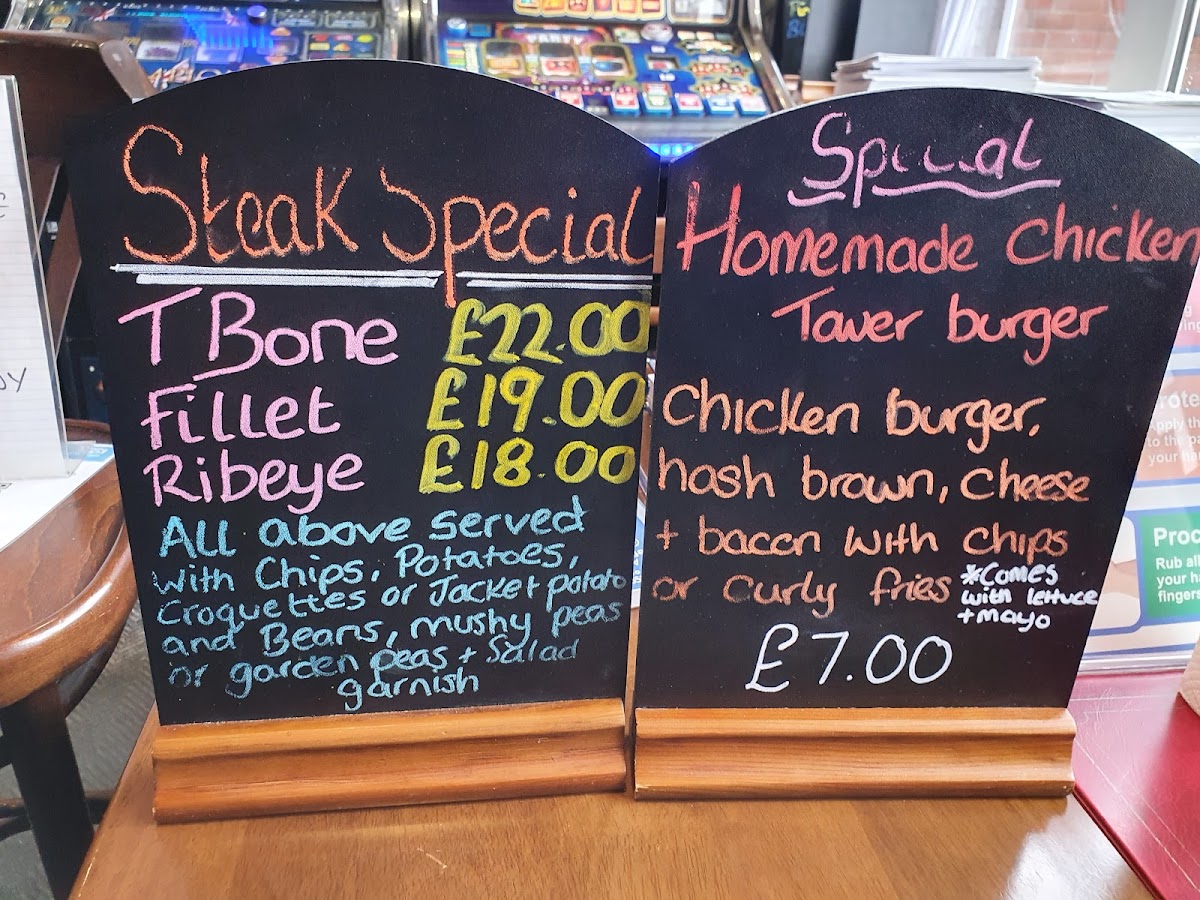 Steak Special
T Bone £22.00
Fillet £19.00
Ribeye £18.00
All above served
with Chips, Potatoes,
Croquettes or Jacket potato
and Beans, mushy peas
or garden peas + Salad
garnish
Special
Homemade Chicken
Tower burger
Chicken burger,
hash brown, cheese
+ bacon with chips
or curly fries
*Comes
with lettuce
+ mayo
£7.00
PARTY
Apply th
to the pa
your ha
Proc
Rub all
your ha
fingers